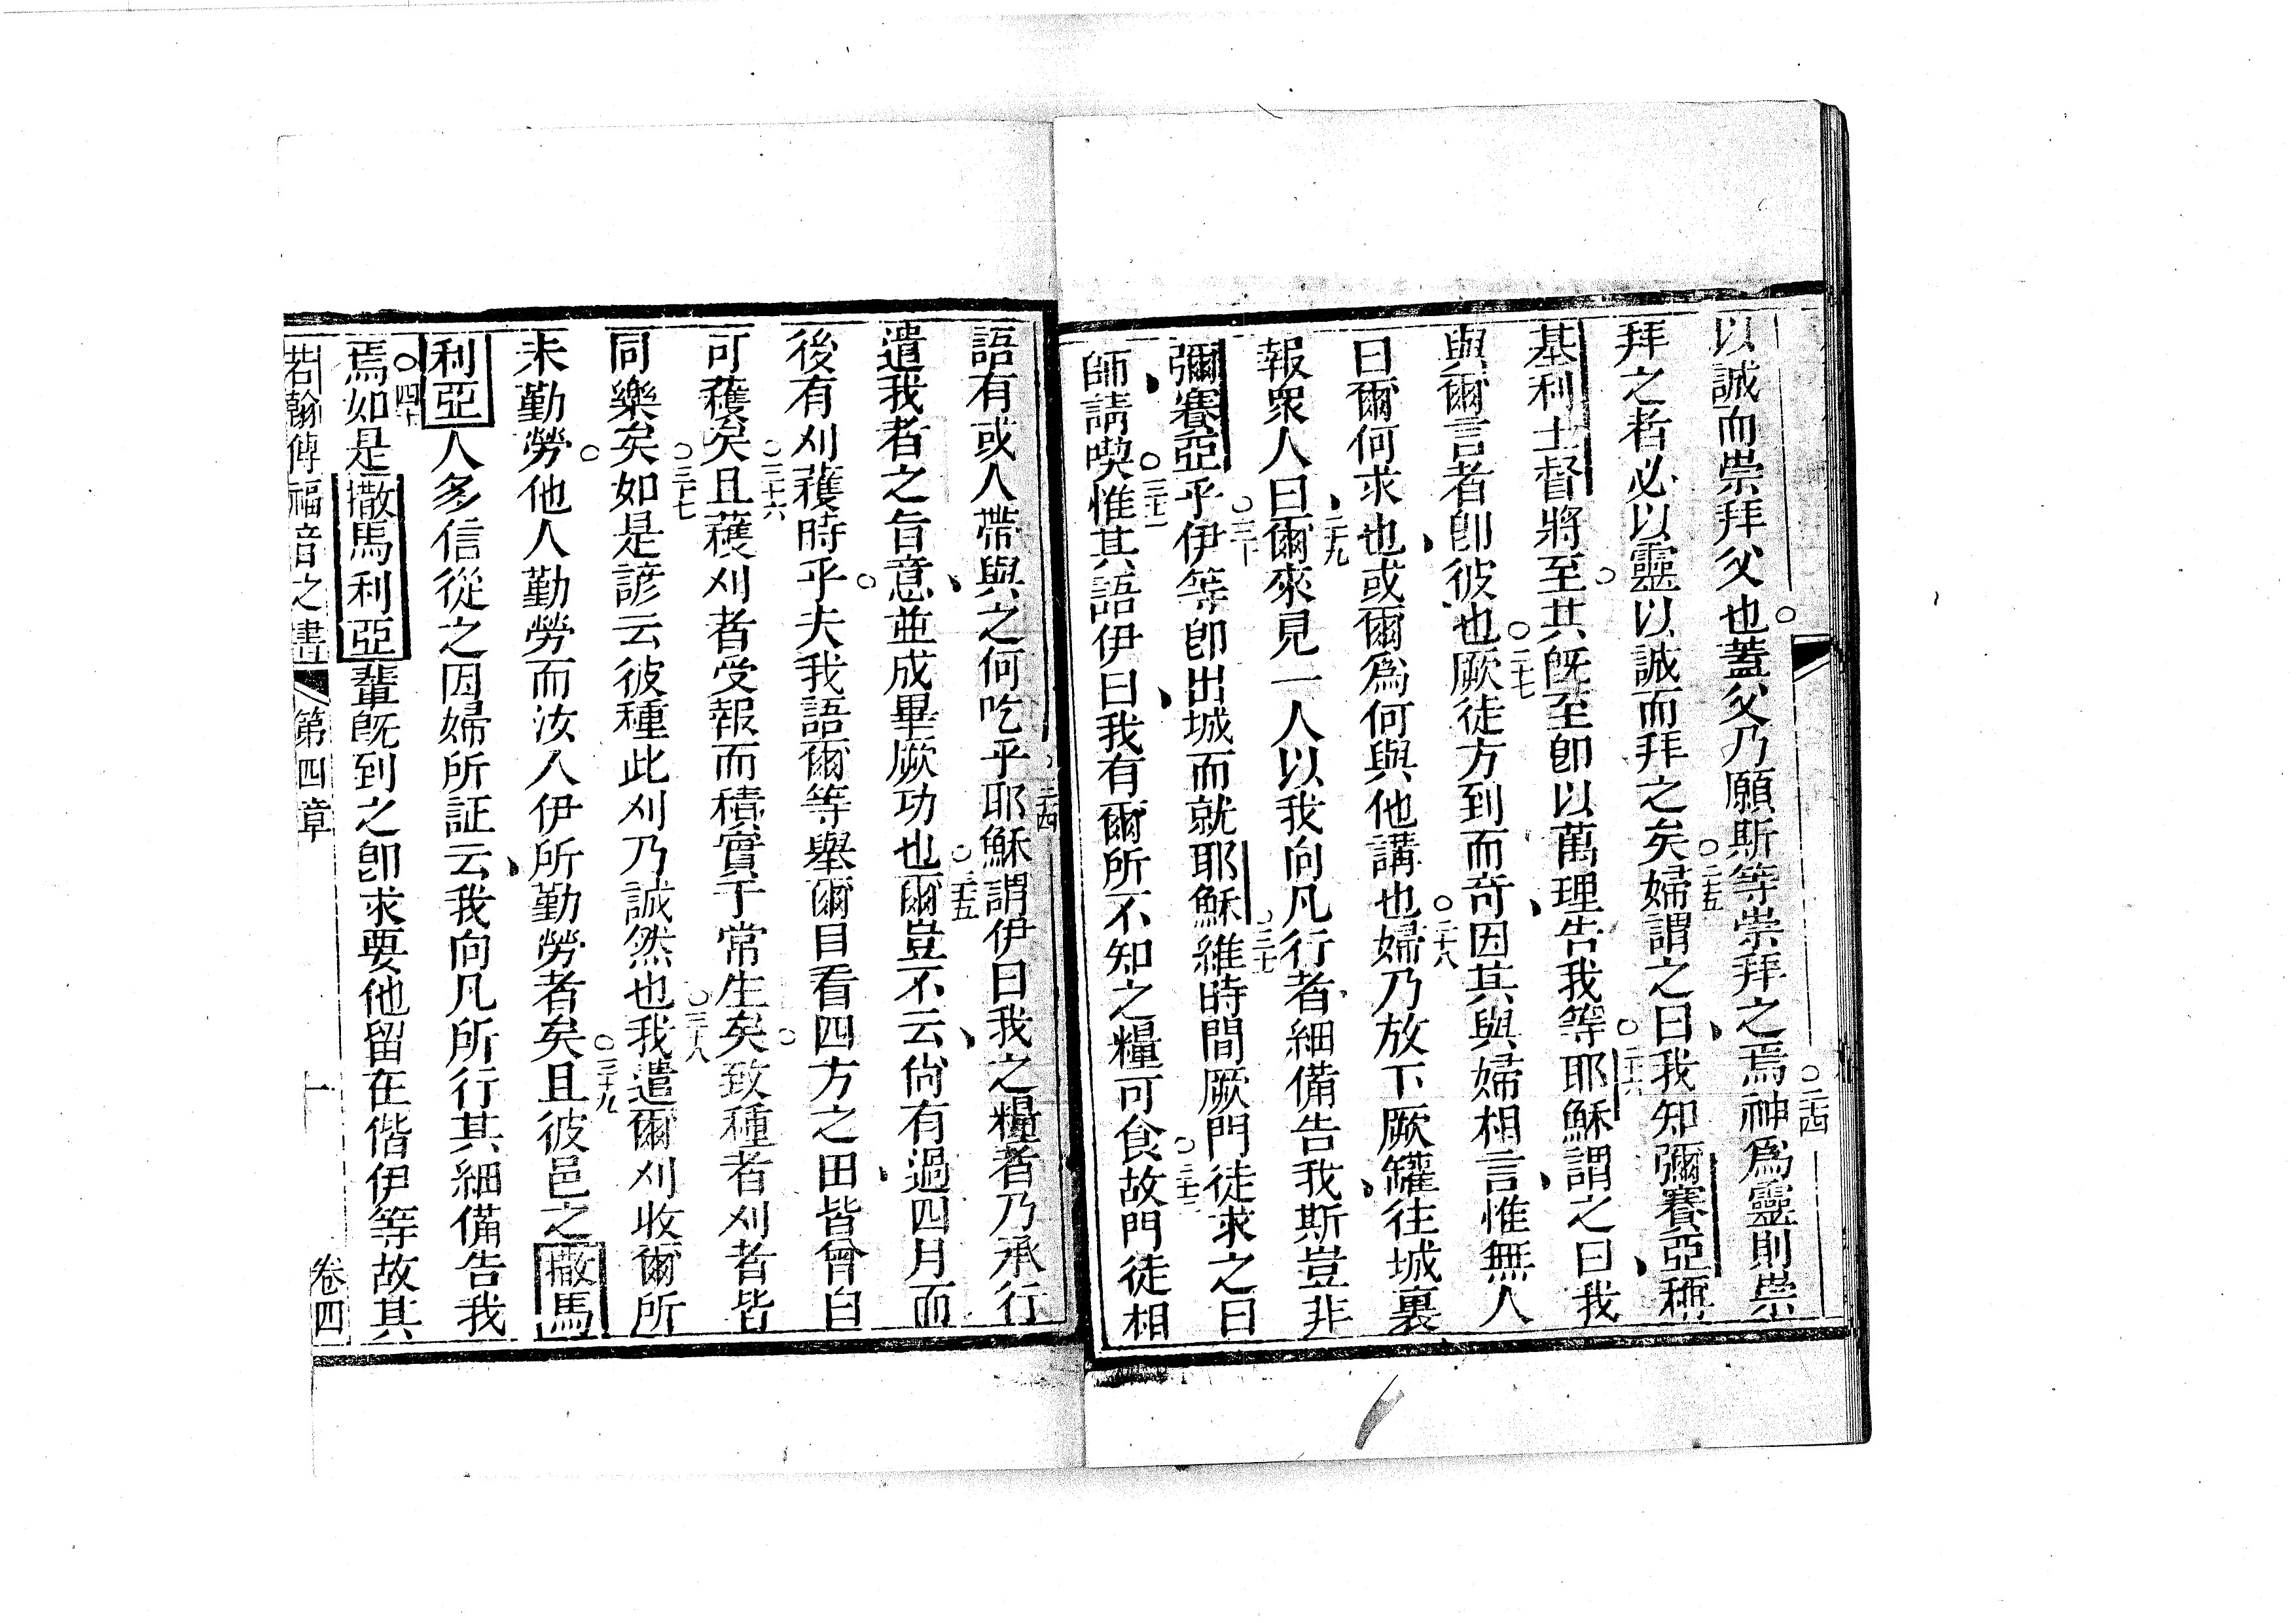 以誠而崇拜父也蓋父乃願斯等崇拜之焉神為靈則崇
○二十四
拜之者必以靈以誠而拜之矣婦謂之曰我知彌賽亞稱
○二十五
基利士督將至其既至即以萬理告我等耶穌謂之曰我
○二十六
與爾言者即彼也厥徒方到而奇因其與婦相言惟無人
○二十七
曰爾何求也或爾為何與他講也婦乃放下厥罐往城裏
○二十八
報眾人曰爾來見一人以我向凡行者細備告我斯豈非
二十九
彌賽亞乎伊等即出城而就耶穌維時間厥門徒求之曰
○三十
○三十一
師請喫惟其語伊曰我有爾所不知之糧可食故門徒相
○三十二
○三十三
語有或人帶與之何吃乎耶穌謂伊曰我之糧者乃承行
三十四
遣我者之旨意並成畢厥功也爾豈不云尚有過四月而
○三十五
後有刈穫時乎夫我語爾等舉爾目看四方之田皆曾白
可穫矣且穫刈者受報而積實于常生矣致種者刈者皆
○三十六
同樂矣如是諺云彼種此刈乃誠然也我遣爾刈收爾所
○三十七
○三十八
未勤勞他人勤勞而汝入伊所勤勞者矣且彼邑之撒馬
○三十九
利亞人多信從之因婦所証云我向凡所行其細備告我
焉如是撒馬利亞輩既到之即求要他留在偕伊等故其
○四十
若翰傳福音之書 第四章 卷四